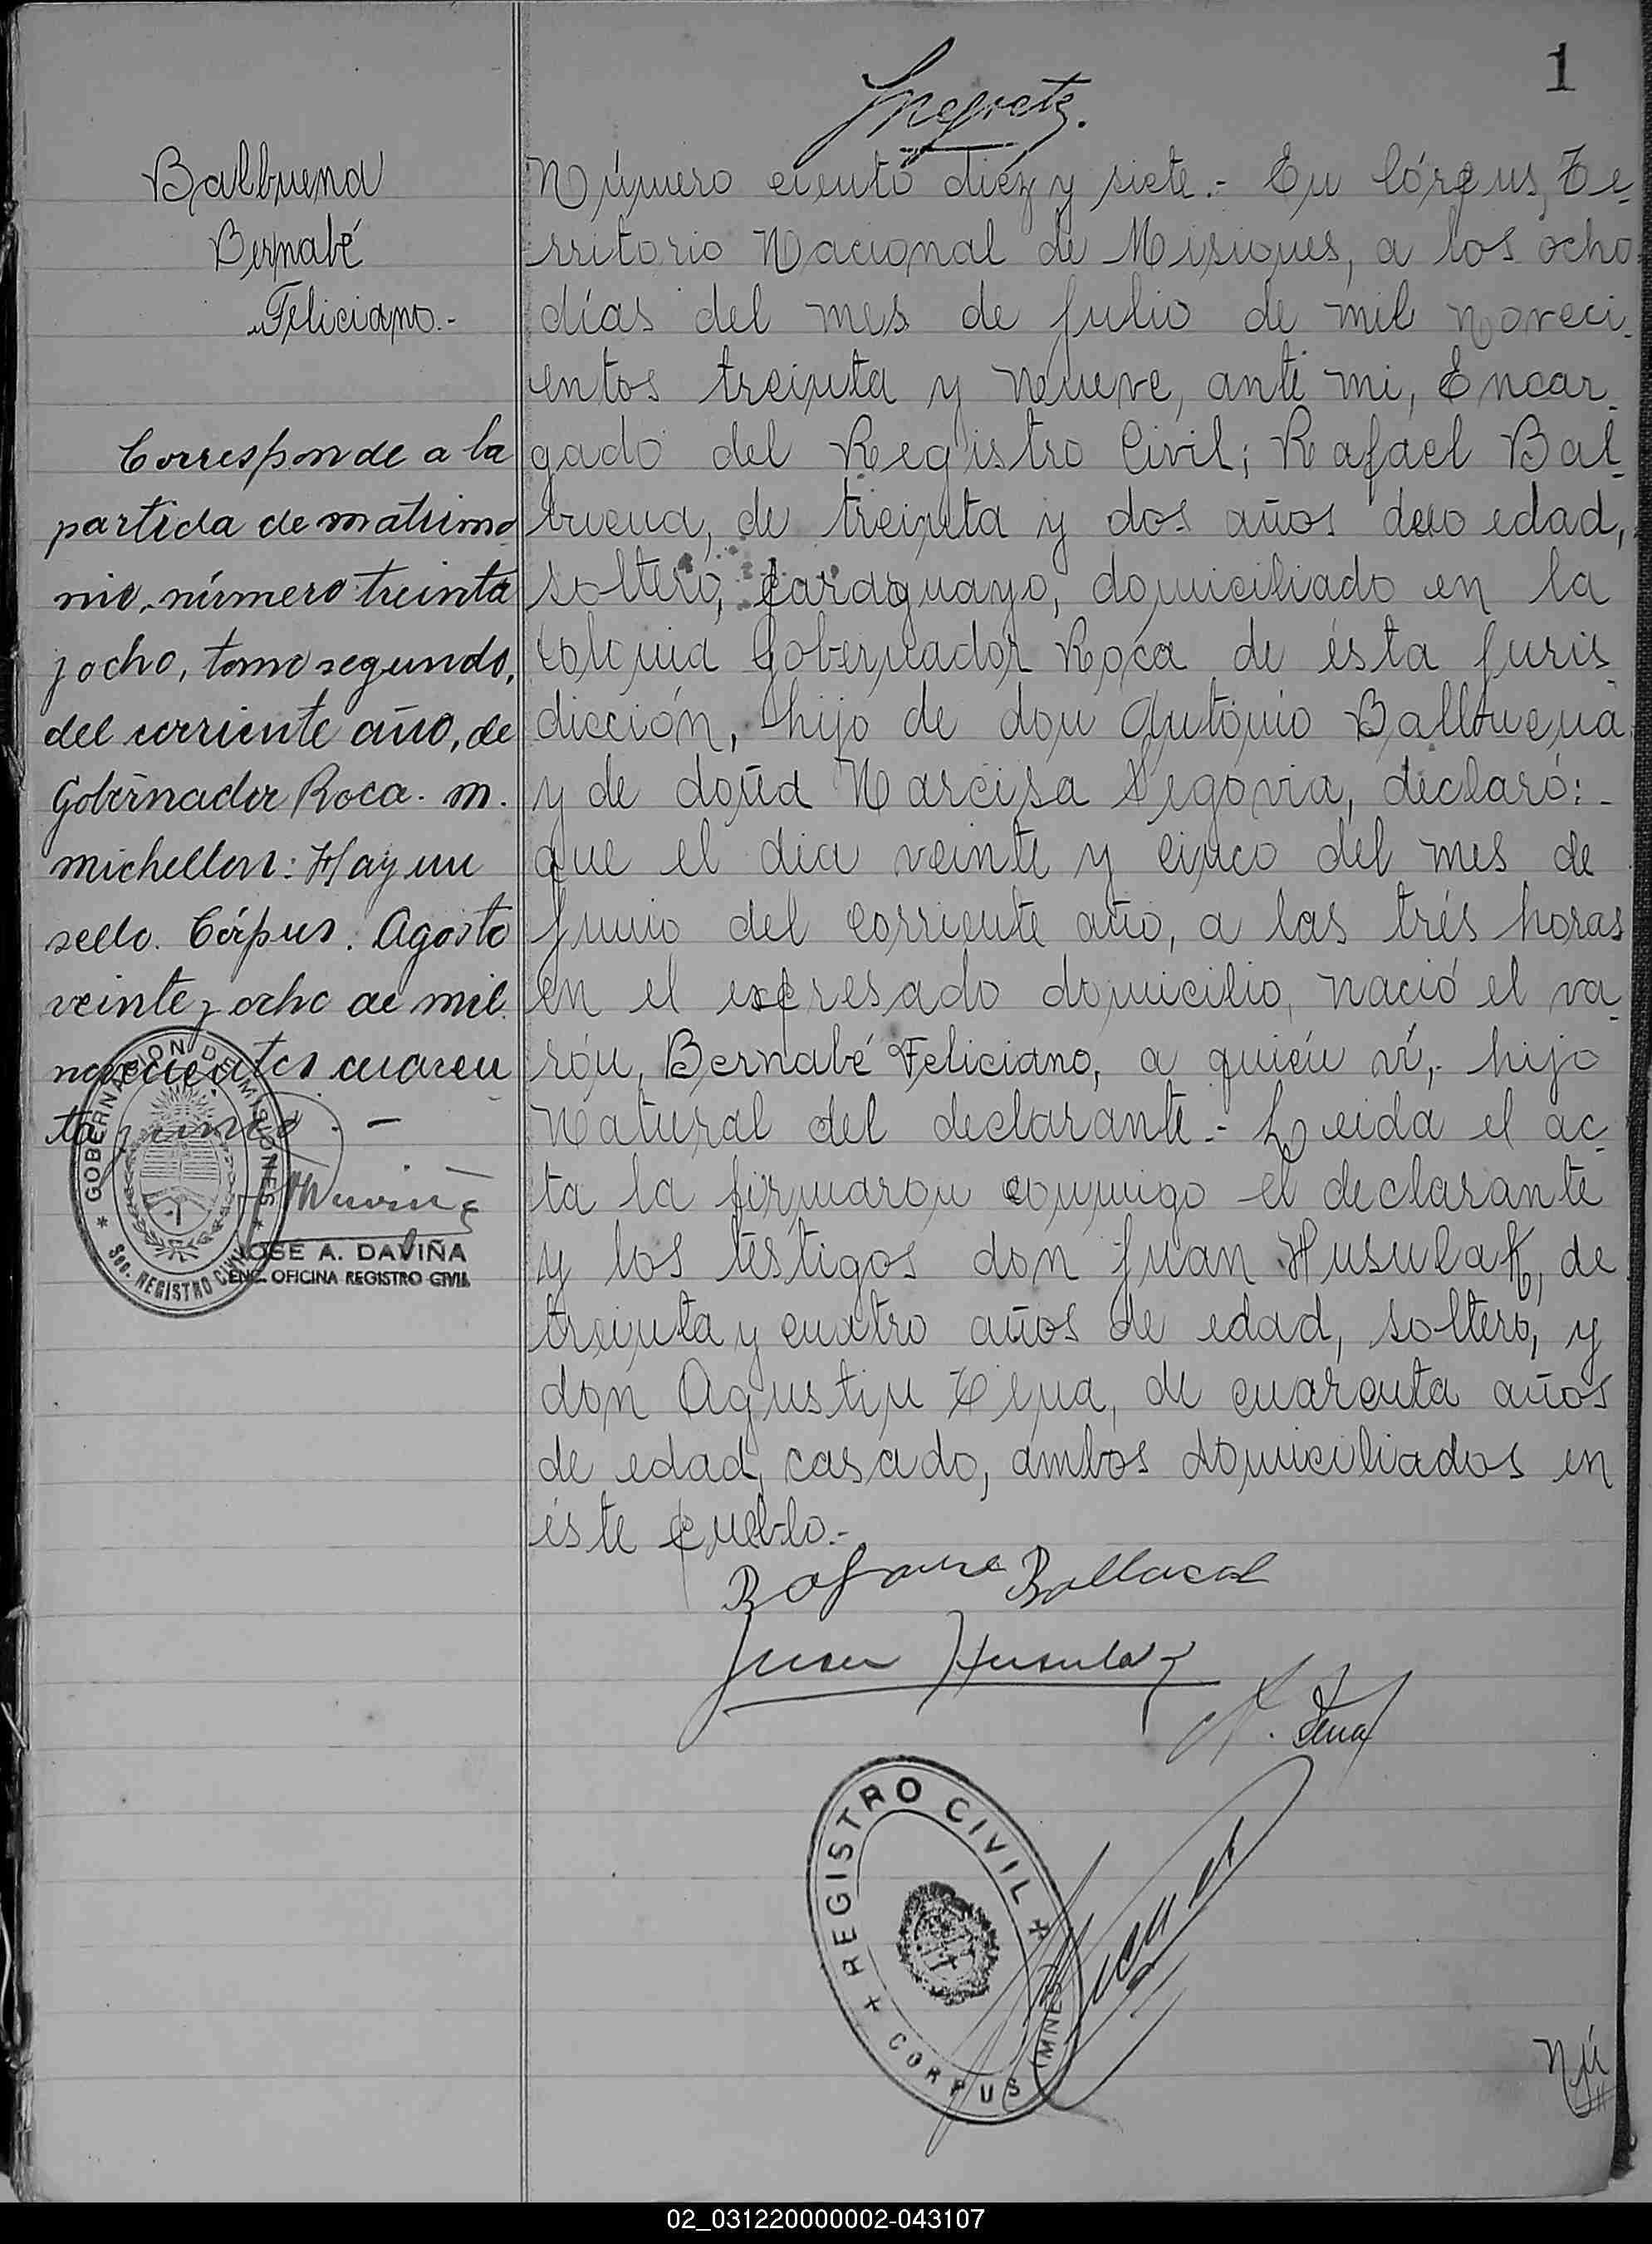 1
Balbuena
Bernabé
Feliciano.-
Corresponde a la
partida de matrimo
nio, número treinta
y ocho, tomo segundo,
del corriente año, de
Gobernador Roca. M.
Michellon: Hay un
sello. Córpus. Agosto
veinte y ocho de mil
novecientos cuaren
ta y
GOBERNACION DE MISIONES
* Sec. REGISTRO CIVIL *
JOSÉ A. DAVIÑA
ENC. OFICINA REGISTRO CIVIL
Número ciento diéz y siete.- En Córpus, Te-
rritorio Nacional de Misiones, a los ocho
días del mes de Julio de mil noveci-
entos treinta y nueve, ante mi, Encar-
gado del Registro Civil; Rafael Bal-
buena, de treinta y dos años de edad,
soltero, paraguayo, domiciliado en la
colonia Gobernador Roca de ésta juris-
dicción, hijo de don Antonio Balbuena
y de doña Narcisa Segovia, declaró:-
que el día veinte y cinco del mes de
Junio del corriente año, a las trés horas
en el expresado domicilio, nació el va-
rón, Bernabé Feliciano, a quién ví, hijo
natural del declarante.- Leida el ac-
ta la firmaron conmigo el declarante
y los testigos don Juan Husulak, de
treinta y cuatro años de edad, soltero, y
don Agustin Tejna, de cuarenta años
de edad, casado, ambos domiciliados en
éste pueblo.-
Juan Husulak
REGISTRO CIVIL
CORPUS (MNES.)
Nú
02_031220000002-043107